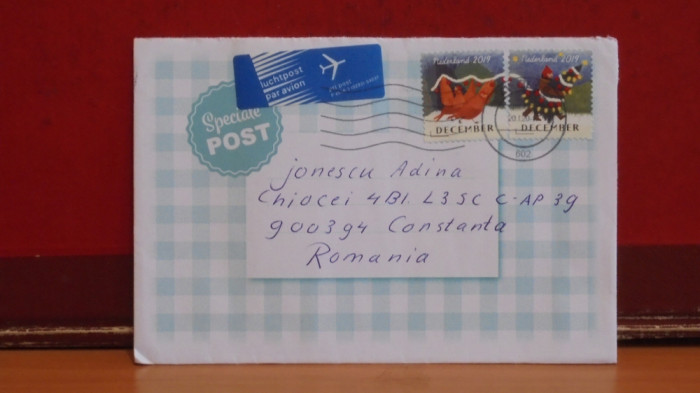 Nederland 2019
Nederland 2019
luchtpost
par avion
Speciale
POST
DECEMBER
DECEMBER
602
Jonescu Adina
Chiocei 4 Bl. L3 SC C-AP 39
900394 Constanta
Romania